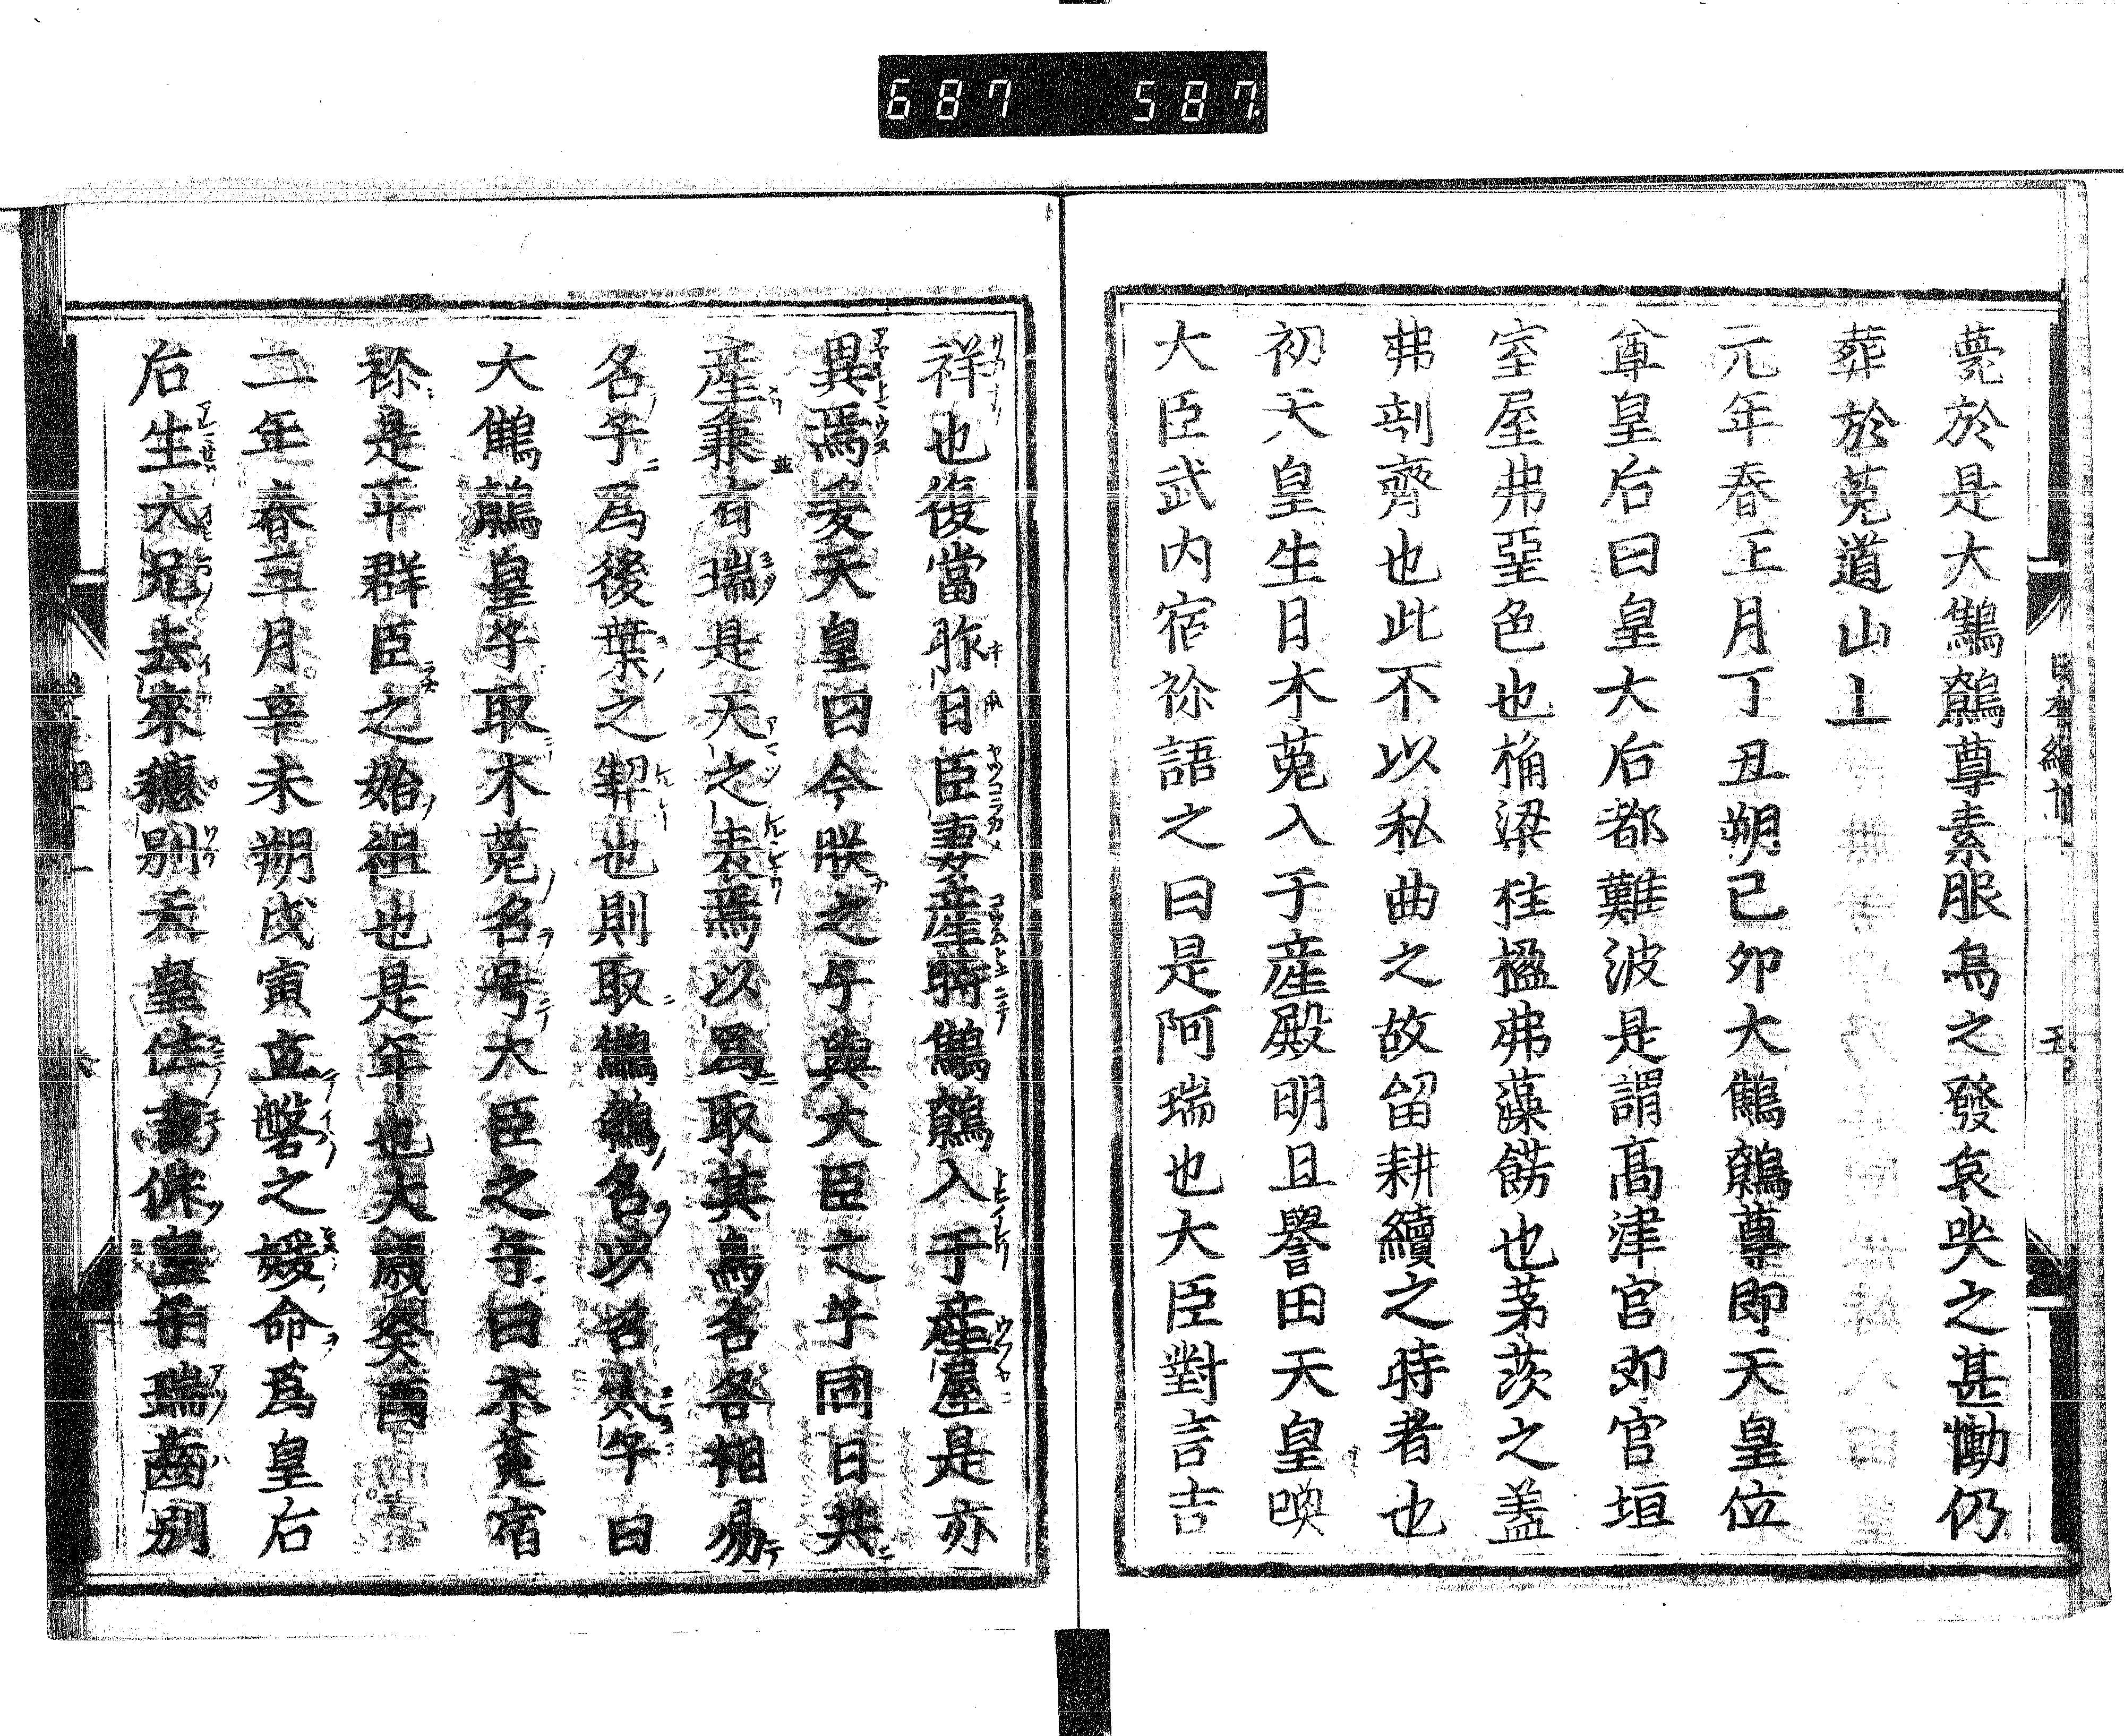 687 587.
薨於是大鷦鷯尊素服爲之發哀哭之甚慟仍
葬於菟道山上
元年春正月丁丑朔己卯大鷦鷯尊即天皇位
尊皇后曰皇太后都難波是謂高津宮卽宮垣
室屋弗堊色也桷梁柱楹弗藻餝也茅茨之蓋
弗剖齊也此不以私曲之故留耕績之時者也
初天皇生日木菟入于産殿明旦譽田天皇喚
大臣武内宿祢語之曰是何瑞也大臣對言吉
日本紀十一
五
祥也復當昨日臣妻産時鷦鷯入于産屋是亦
異焉爰天皇曰今朕之子與大臣之子同日共
産兼有瑞是天之表焉以爲取其鳥名各相易
名子爲後葉之契也則取鷦鷯名以名太子曰
大鷦鷯皇子取木菟名号大臣之子曰木菟宿
祢是平群臣之始祖也是年也大歳癸酉
二年春三月辛未朔戊寅立磐之媛命爲皇后
后生大兄去來穗別天皇住吉仲皇子瑞齒別